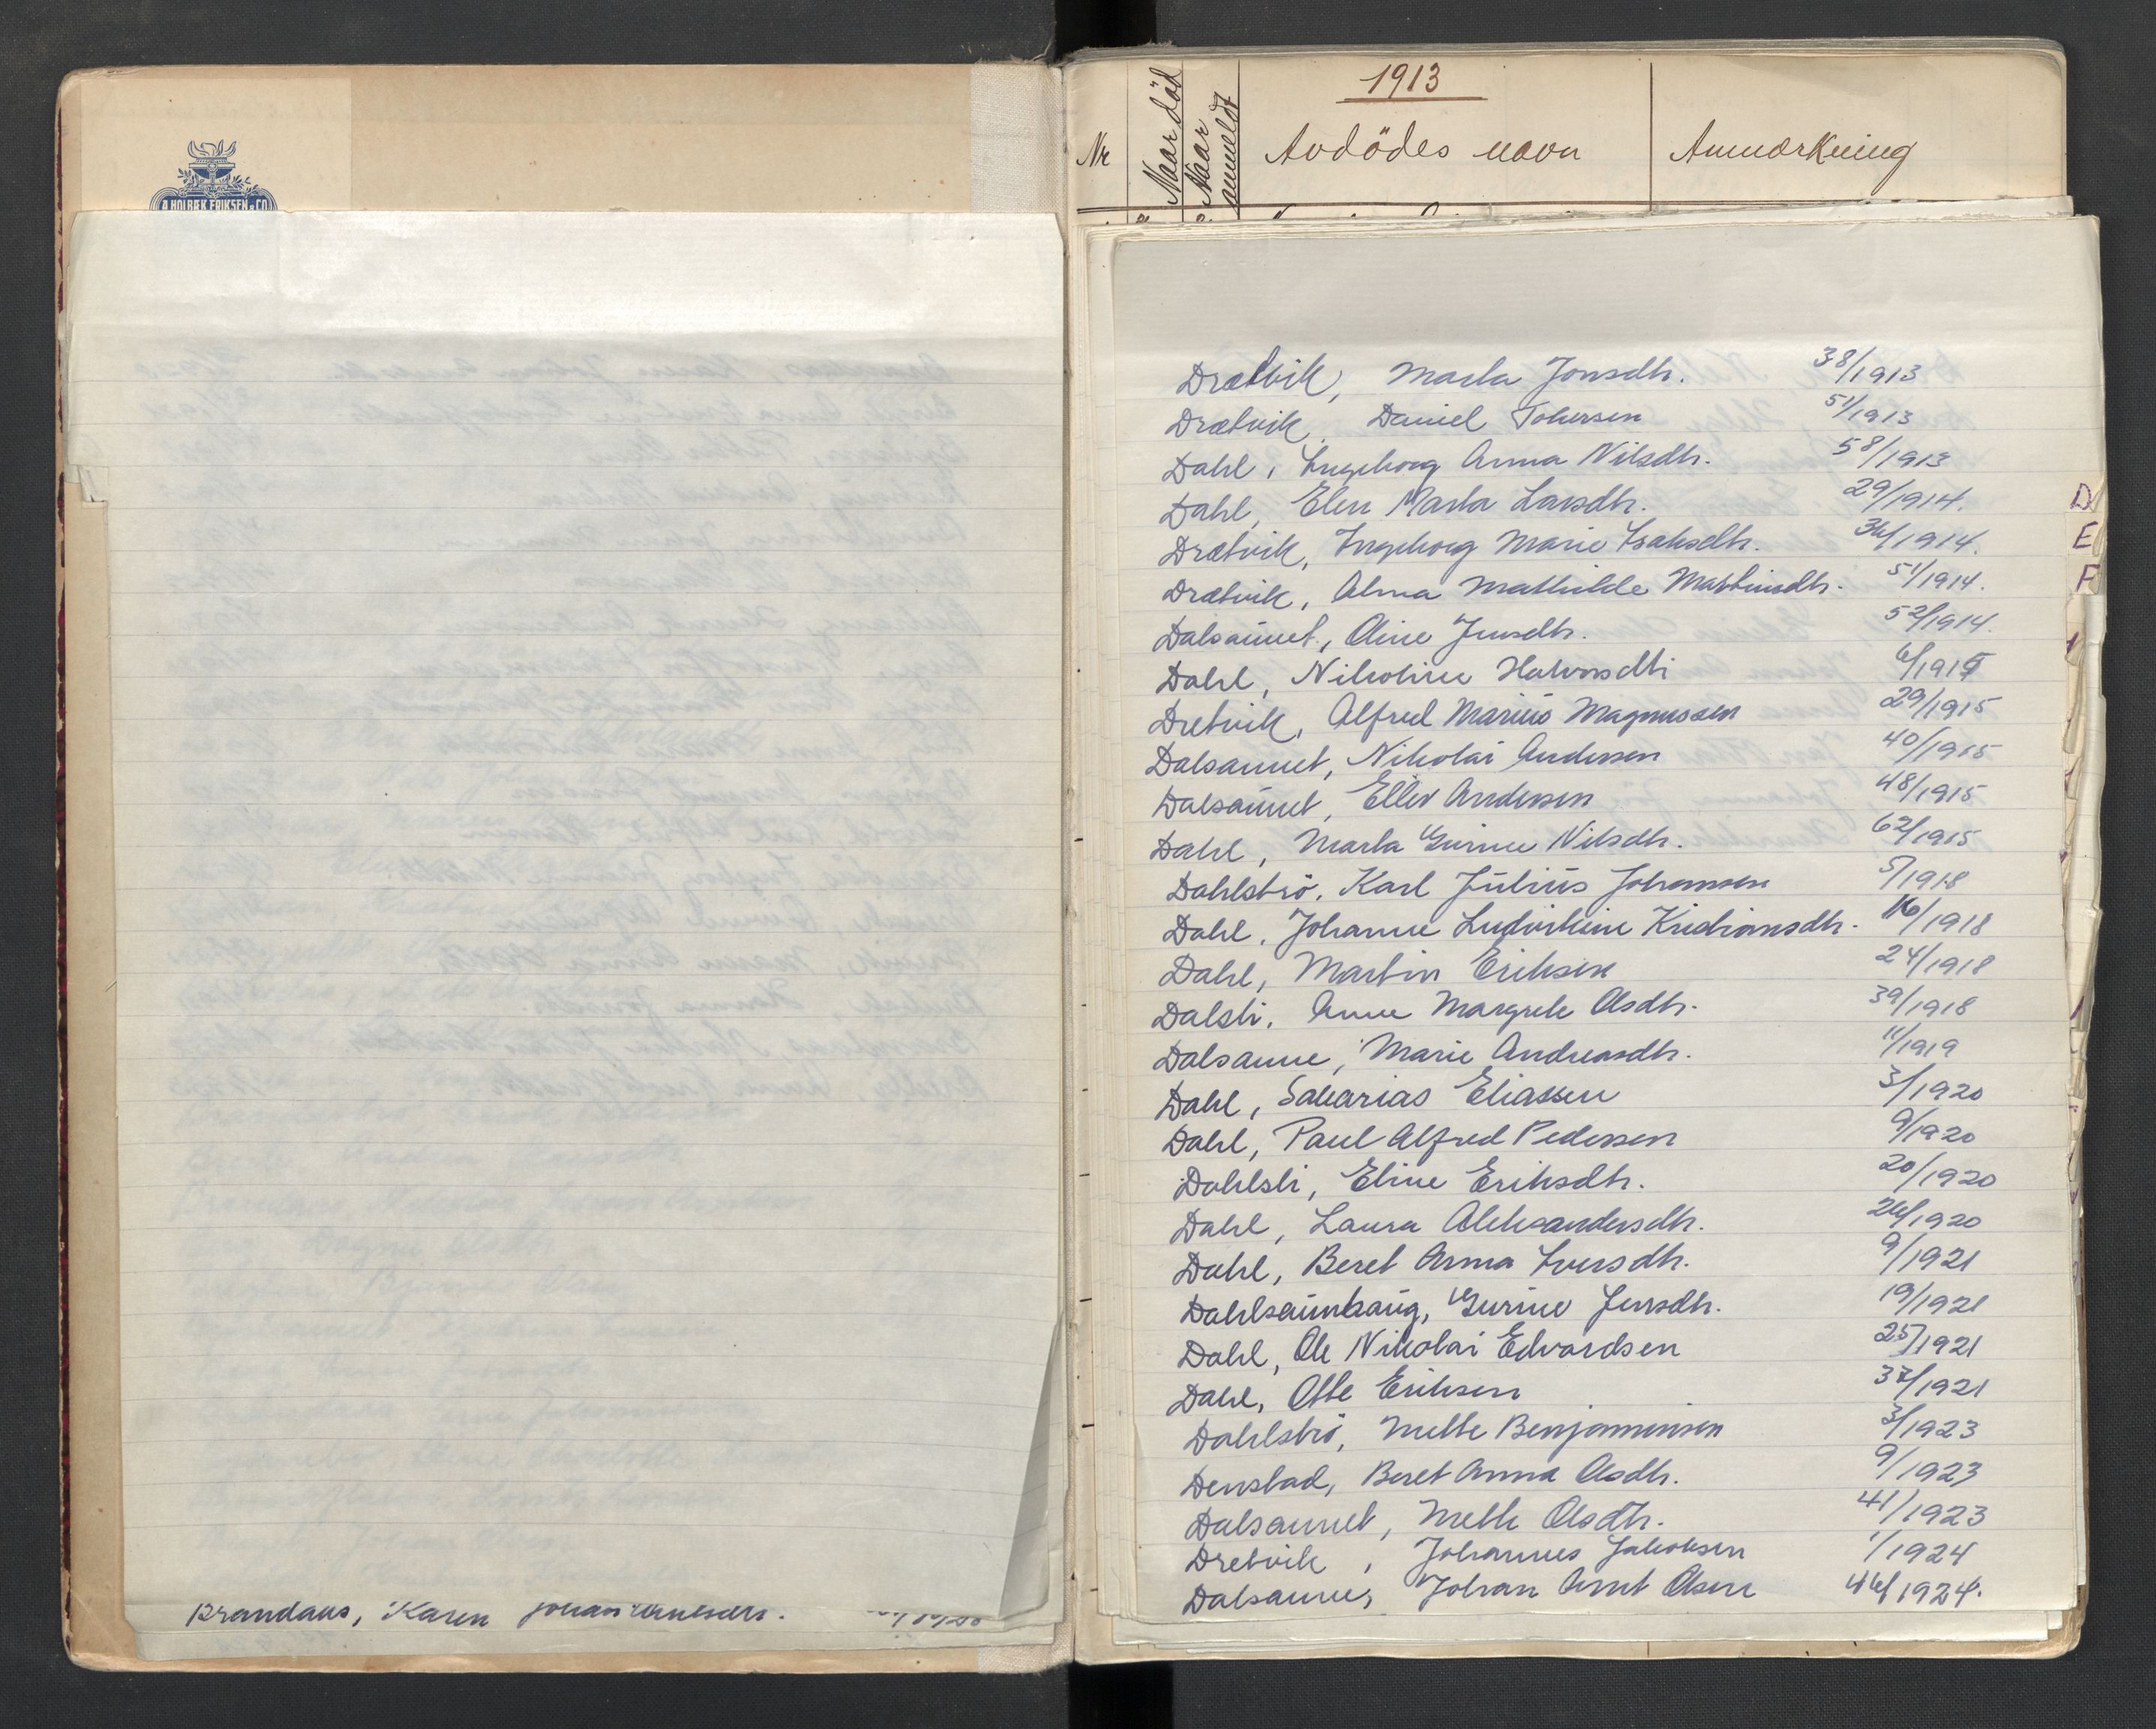 A HOLBÆK ERIKSEN & CO
Brandaus, Karen
1913
Nr
Naar död
Naar anmeldt
Avdödes navn
Anmærkning
Drætvik, Marta Jonsdtr. 38/1913
Drætvik, Daniel 51/1913
Dahl, Ingeborg Anna Nilsdtr. 58/1913
Dahl, Elen Marta Larsdtr. 29/1914.
Drætvik, Ingeborg Marie Isaksdtr. 36/1914.
Drætvik, Alma Mathilde Martinsdtr. 51/1914.
Dalsaunet, Oline Jensdtr. 52/1914.
Dahl, Nikoline Halvorsdtr 6/1915
Dretvik, Alfred Marius Magnussen 29/1915
Dalsaunet, Nikolai Andersen 40/1915
Dalsaunet, Ellev Andersen 48/1915
Dahl, Marta Gurine Nilsdtr. 62/1915
Dahlsbrø, Karl Julius Johansen 5/1918
Dahl, Johanne Ludvikine Kristiansdtr. 16/1918
Dahl, Martin Eriksen 24/1918
Dalsli, Anne Margrete Olsdtr. 39/1918
Dalsaune, Marie Andreasdtr. 11/1919
Dahl, Sakarias Eliassen 3/1920
Dahl, Paul Alfred Pedersen 9/1920
Dahlsli, Eline Eriksdtr. 20/1920
Dahl, Laura Aleksandersdtr. 26/1920
Dahl, Beret Anna Iversdtr. 9/1921
Dahlsaunhaug, Gurine Jensdtr. 19/1921
Dahl, Ole Nikolai Edvardsen 25/1921
Dahl, Otte Eriksen 37/1921
Dahlsbrø, Mette Benjaminsen 3/1923
Denstad, Beret Anna Olsdtr. 9/1923
Dalsaunet, Mette Olsdtr. 41/1923
Dretvik, Johannes Jakobsen 1/1924
Dalsaune, Johan Arnt Olsen 46/1924.
D
E
F